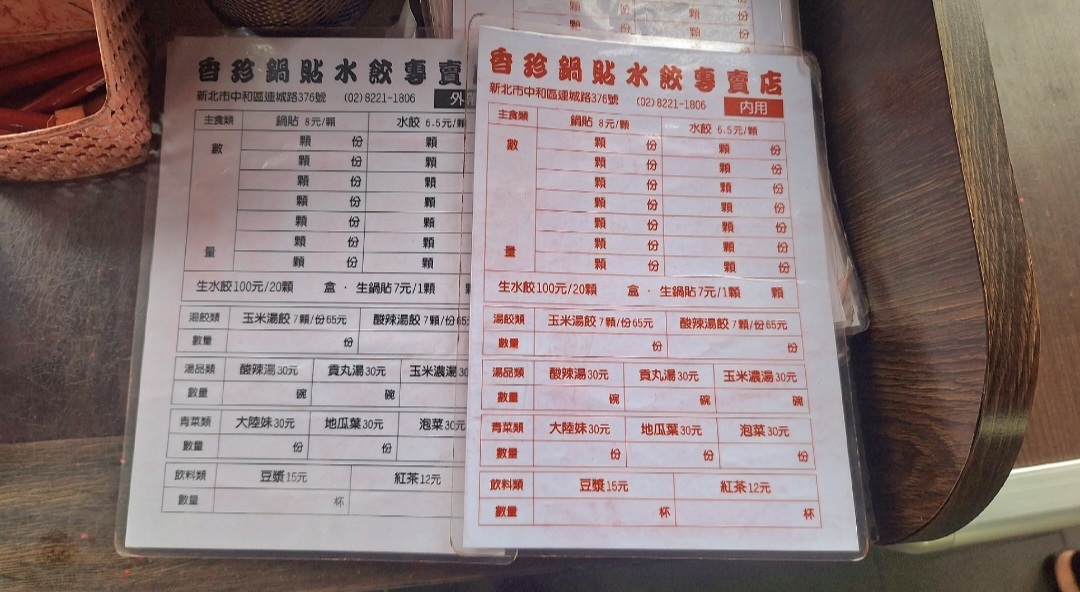 香珍鍋貼水餃專賣
新北市中和區連城路376號 (02)8221-1806 外
主食類 鍋貼 8元/顆 水餃 6.5元/顆
數
顆 份 顆
顆 份 顆
顆 份 顆
顆 份 顆
顆 份 顆
顆 份 顆
量
顆 份 顆
生水餃100元/20顆 盒 · 生鍋貼7元/1顆
湯餃類 玉米湯餃 7顆/份65元 酸辣湯餃 7顆/份65
數量 份
湯品類 酸辣湯30元 貢丸湯30元 玉米濃湯30
數量 碗 碗
青菜類 大陸妹30元 地瓜葉30元 泡菜30元
數量 份 份
飲料類 豆漿15元 紅茶12元
數量 杯
顆 顆
顆 顆
香珍鍋貼水餃專賣店
新北市中和區連城路376號 (02)8221-1806 內用
主食類 鍋貼 8元/顆 水餃 6.5元/顆
數
顆 份 顆 份
顆 份 顆 份
顆 份 顆 份
顆 份 顆 份
顆 份 顆 份
顆 份 顆 份
量
顆 份 顆 份
生水餃100元/20顆 盒 · 生鍋貼7元/1顆 顆
湯餃類 玉米湯餃 7顆/份65元 酸辣湯餃 7顆/份65元
數量 份 份
湯品類 酸辣湯30元 貢丸湯30元 玉米濃湯30元
數量 碗 碗 碗
青菜類 大陸妹30元 地瓜葉30元 泡菜30元
數量 份 份 份
飲料類 豆漿15元 紅茶12元
數量 杯 杯